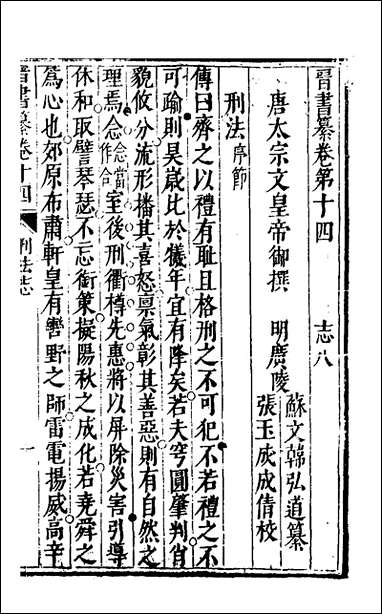 晉書纂卷第十四　志八
唐太宗文皇帝御撰　明廣陵
蘇文韓弘道纂
張玉成成倩校
刑法序節
傳曰齊之以禮有恥且格刑之不可犯不若禮之不
可踰則昊歲比於犧年宜有降矣若夫穹圓肇判肖
貌攸分流形播其喜怒禀氣彰其善惡則有自然之
理焉念念當作合室後刑衢樽先惠將以屏除災害引導
休和取譬琴瑟不忘銜策擬陽秋之成化若堯舜之
爲心也郊原布肅軒皇有轡野之師雷電揚威高辛
晉書纂卷十四
刑法志
一